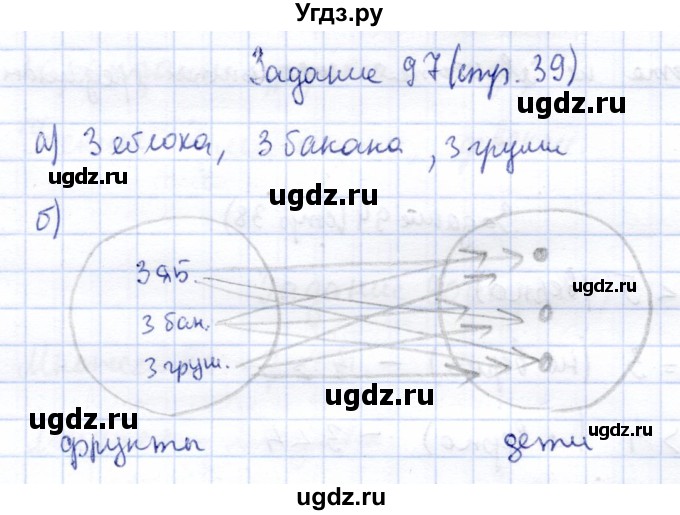 Угдз.ру
Задание 97 (стр. 39)
ugdz.ru
а) 3 яблока, 3 банана, 3 груши
ugdz.ru
ugdz.ru
б)
3 яб.
ugdz.ru
ugdz.ru
3 бан.
3 груш.
ugdz.ru
ugdz.ru
фрукты
дети
ugdz.ru
ugdz.ru